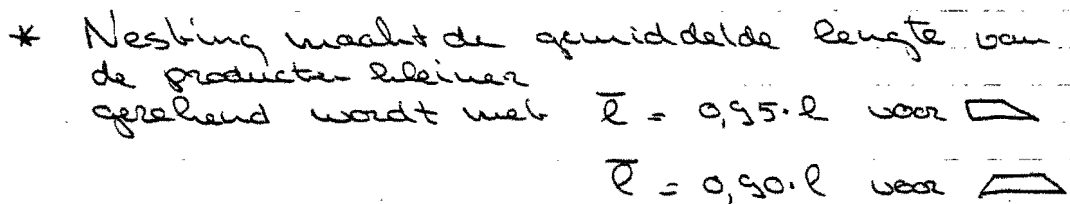 * Nesting maakt de gemiddelde lengte van
de producten kleiner
gerekend wordt met l̅ = 0,95·l voor
l̅ = 0,90·l voor